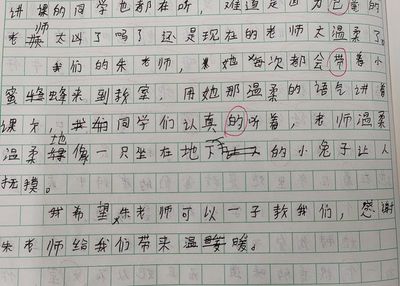 讲课的同学也都在听，难道是因为已前的
老师太凶了吗？还是现在的老师太温柔了。
我们的朱老师，她每次都会带着小
蜜蜂来到教室，用她那温柔的语气讲着
课文，同学们认真的听着，老师温柔
温柔地像一只坐在地下的小兔子让人
抚摸。
我希望，朱老师可以一子教我们，感谢
朱老师给我们带来温暖。